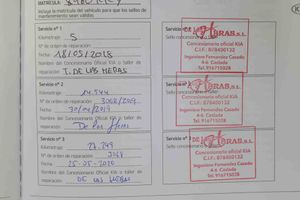 MATRÍCULA:
Incluya la matrícula del vehículo para que los sellos de
mantenimiento sean válidos.
Servicio nº 1
Kilometraje: 5
Nº de orden de reparación:
Fecha: 18/05/2018
Nombre del Concesionario Oficial KIA o taller de
reparación:
T. DE LAS HERAS
Sello concesionario
HERAS, S.L.
Concesionario oficial KIA
C.I.F.: B78400132
Ingeniero Fernández Casado
4-6 Coslada
Tel. 916715028
Servicio nº 2
Kilometraje: 14.544
Nº de orden de reparación:
Fecha: 30/04/2019
Nombre del Concesionario Oficial KIA o taller de
reparación: De las Heras
Concesionario oficial KIA
C.I.F.: B78400132
Ingeniero Fernández Casado
4-6 Coslada
Tel. 916715028
Servicio nº 3
Kilometraje: 27.249
Nº de orden de reparación:
Fecha: 25-05-2020
Nombre del Concesionario Oficial KIA o taller de
reparación: DE LAS HERAS
Concesionario oficial KIA
C.I.F.: B78400132
Ingeniero Fernández Casado
4-6 Coslada
Tel. 916715028